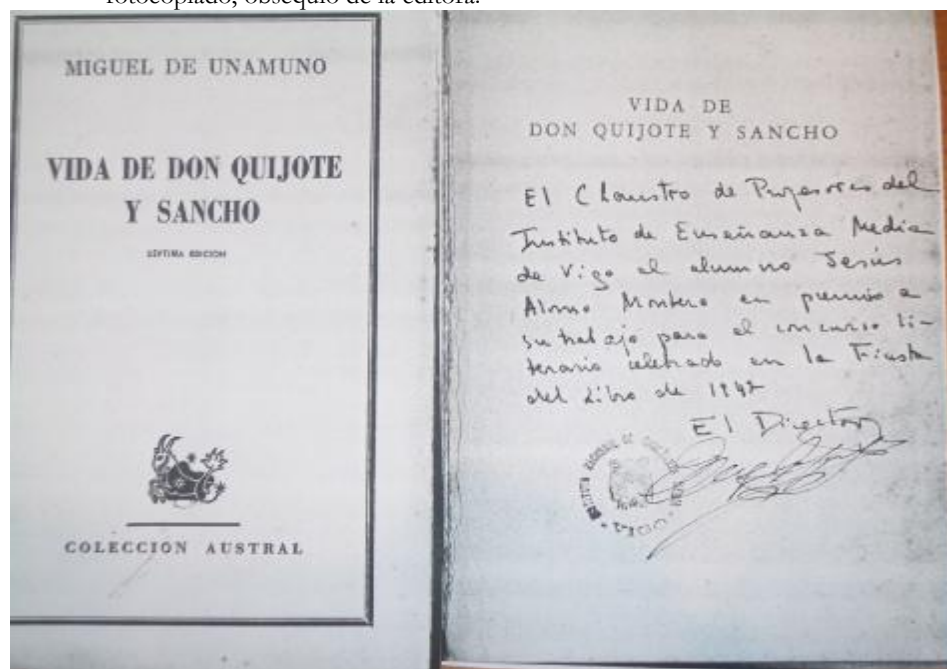 fotocopiado, obsequio de la editora.
MIGUEL DE UNAMUNO
VIDA DE DON QUIJOTE
Y SANCHO
SÉPTIMA EDICION
COLECCION AUSTRAL
VIDA DE
DON QUIJOTE Y SANCHO
El Claustro de Profesores del
Instituto de Enseñanza Media
de Vigo al alumno Jesús
Alonso Montero en premio a
su trabajo para el concurso li-
terario celebrado en la Fiesta
del Libro de
El Director